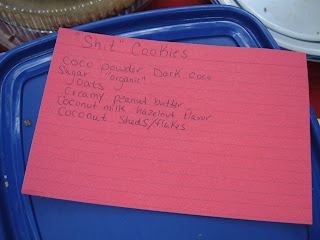 "Shit" Cookies
Coco powder Dark coco
Sugar "organic"
Oats
Creamy peanut butter
Coconut milk hazelnut flavor
Coconut Sheds/flakes